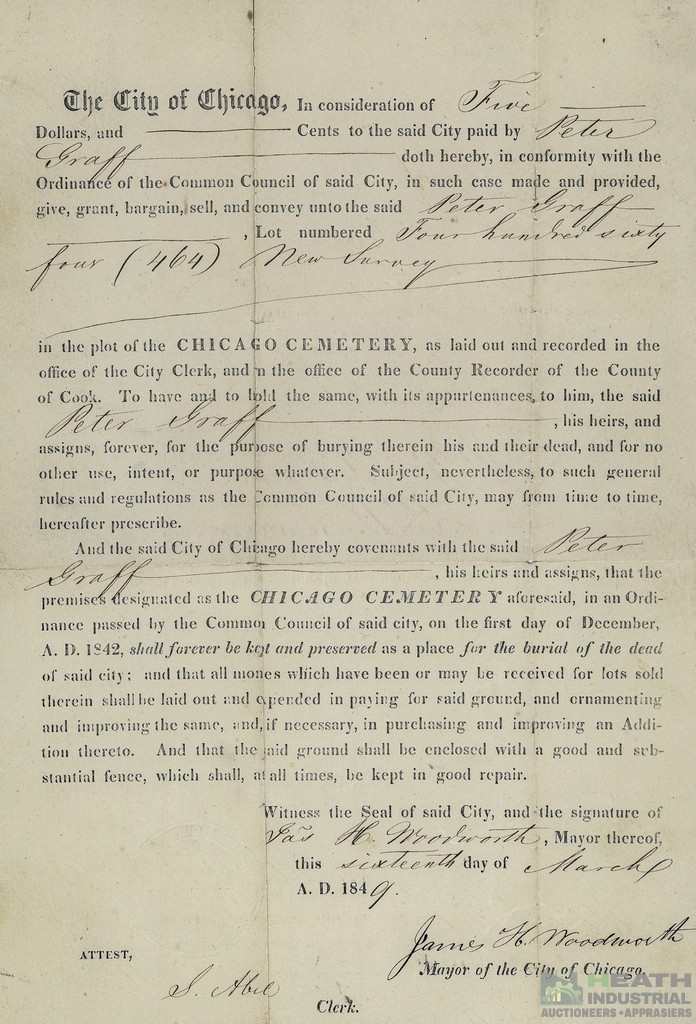 The City of Chicago, In consideration of Five
Dollars, and Cents to the said City paid by Peter
Graff doth hereby, in conformity with the
Ordinance of the Common Council of said City, in such case made and provided,
give, grant, bargain, sell, and convey unto the said Peter Graff
, Lot numbered Four hundred sixty
four (464) New Survey
in the plot of the CHICAGO CEMETERY, as laid out and recorded in the
office of the City Clerk, and n the office of the County Recorder of the County
of Cook. To have and to hold the same, with its appurtenances, to him, the said
Peter Graff , his heirs, and
assigns, forever, for the purpose of burying therein his and their dead, and for no
other use, intent, or purpose whatever. Subject, nevertheless, to such general
rules and regulations as the Common Council of said City, may from time to time,
hereafter prescribe.
And the said City of Chicago hereby covenants with the said Peter
Graff , his heirs and assigns, that the
premises designated as the CHICAGO CEMETERY aforesaid, in an Ordi-
nance passed by the Common Council of said city, on the first day of December,
A. D. 1842, shall forever be kept and preserved as a place for the burial of the dead
of said city; and that all mones which have been or may be received for lots sold
therein shall be laid out and expended in paying for said ground, and ornamenting
and improving the same, and, if necessary, in purchasing and improving an Addi-
tion thereto. And that the said ground shall be enclosed with a good and sub-
stantial fence, which shall, at all times, be kept in good repair.
Witness the Seal of said City, and the signature of
Jas H. Woodworth, Mayor thereof,
this sixteenth day of March
A. D. 1849.
James H. Woodworth
Mayor of the City of Chicago.
ATTEST,
S. Abel
Clerk.
HEATH
INDUSTRIAL
AUCTIONEERS • APPRASIERS